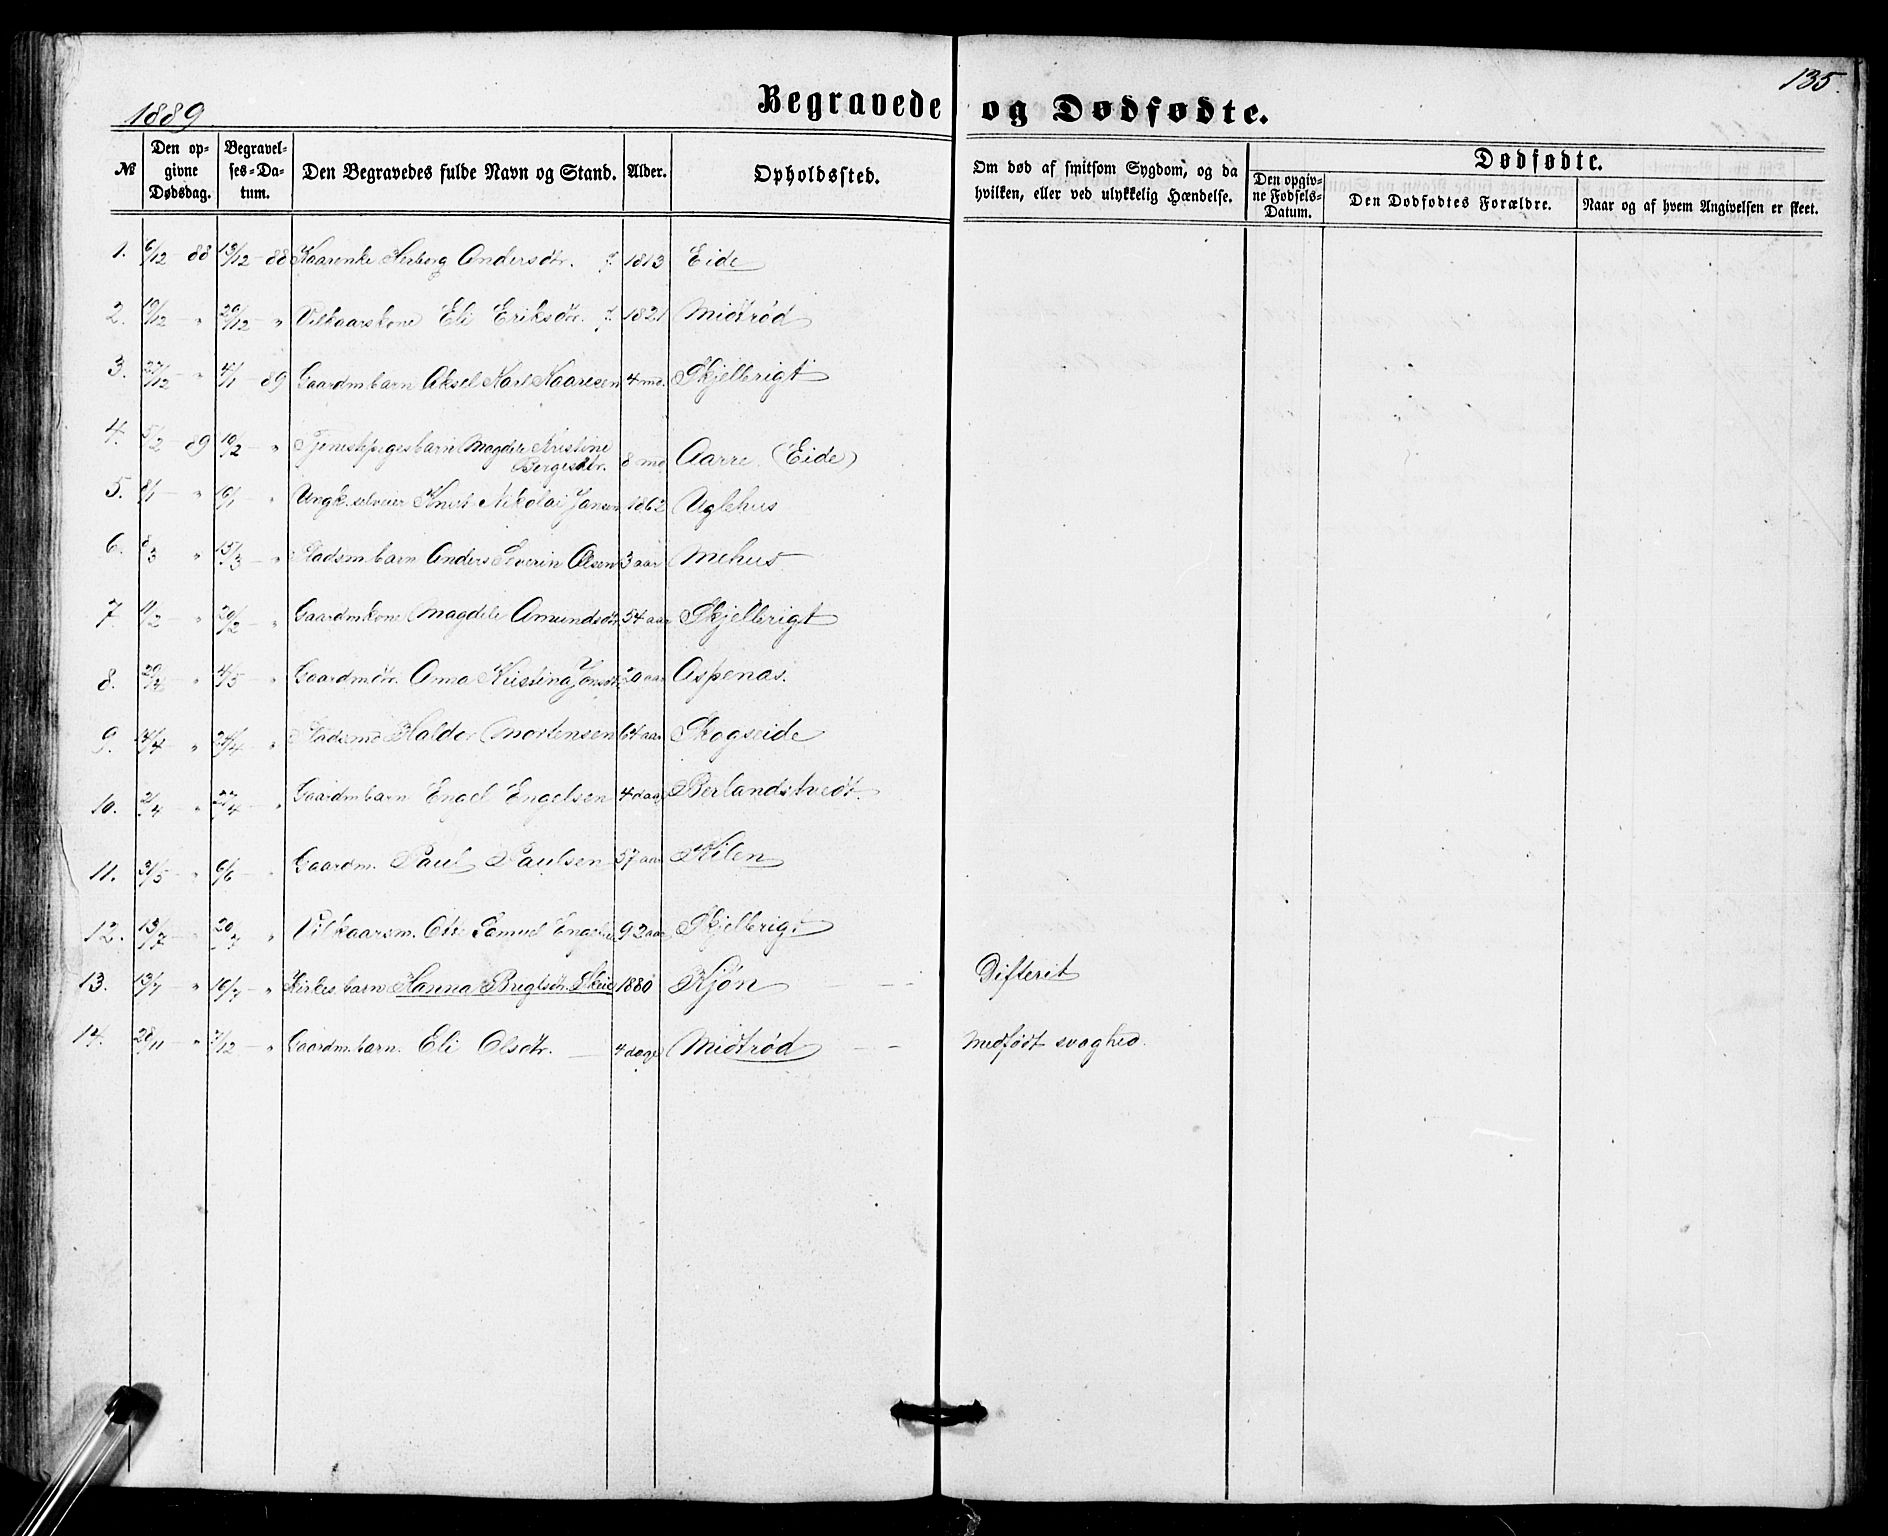 135.
1889
Begravede og Dødfødte.
№ Den opgivne Dødsdag. Begravelses-Datum. Den Begravedes fulde Navn og Stand. Alder. Opholdssted. Om død af smitsom Sygdom, og da hvilken, eller ved ulykkelig Hændelse. Dødfødte. Den opgivne Fødsels-Datum. Den Dødfødtes Forældre. Naar og af hvem Angivelsen er skeet.
1. 6/12 88 13/12 88 Herborg Andersdtr. f. 1813 Eide
2. 10/12 " 20/12 " Vilkaarskone Eli Eriksdtr. f. 1821 Midtrød
3. 27/12 " 4/1 89 Gaardm. barn Aksel Karl Kaaresen 4 md. Skjelbrigt
4. 5/2 89 10/2 " Tjenestepiges barn Magdele Kristine
Bergesdtr. 8 md Aarre. (Eide)
5. 8/1 " 16/1 " Ungk. selveier Knut Nikolai Jansen 1862 Uglehus
6. 8/3 " 15/3 " Pladsm. barn Anders Severin Olsen 3 aar Mehus
7. 11/2 " 20/2 " Gaardm kone Magdele Amundsdtr. 54 aar Skjelbrigt
8. " 4/5 " Gaardm dtr. Ana Kristina Jonsdtr. 20 aar Aspenas.
9. 14/4 " 24/4 " Pladsmd Haldor Mortensen 64 aar Skogseide
10. 2/4 " 27/4 " Gaardm barn Engel Engelsen 4 daa Berlandstvedt.
11. 31/5 " 6/6 " Gaardm. Paul Paulsen 57 aar Kilen
12. 13/7 " 20/7 " Vilkaarsm. Ole Samuel 92 aar Skjelbrigt
13. 13/7 " 16/7 " barn Hanna Skeie 1880 Kjøn Difterit
14. 28/11 " 7/12 " Gaardm. barn. Eli Olsdtr. 4 dage Midtrød Medfødt svaghed.